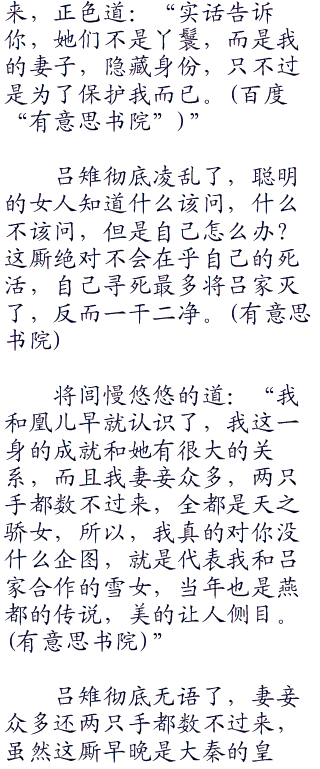 来，正色道：“实话告诉
你，她们不是丫鬟，而是我
的妻子，隐藏身份，只不过
是为了保护我而已。(百度
“有意思书院”)”
吕雉彻底凌乱了，聪明
的女人知道什么该问，什么
不该问，但是自己怎么办？
这厮绝对不会在乎自己的死
活，自己寻死最多将吕家灭
了，反而一干二净。(有意思
书院)
将闾慢悠悠的道：“我
和凰儿早就认识了，我这一
身的成就和她有很大的关
系，而且我妻妾众多，两只
手都数不过来，全都是天之
骄女，所以，我真的对你没
什么企图，就是代表我和吕
家合作的雪女，当年也是燕
都的传说，美的让人侧目。
(有意思书院)”
吕雉彻底无语了，妻妾
众多还两只手都数不过来，
虽然这厮早晚是大秦的皇